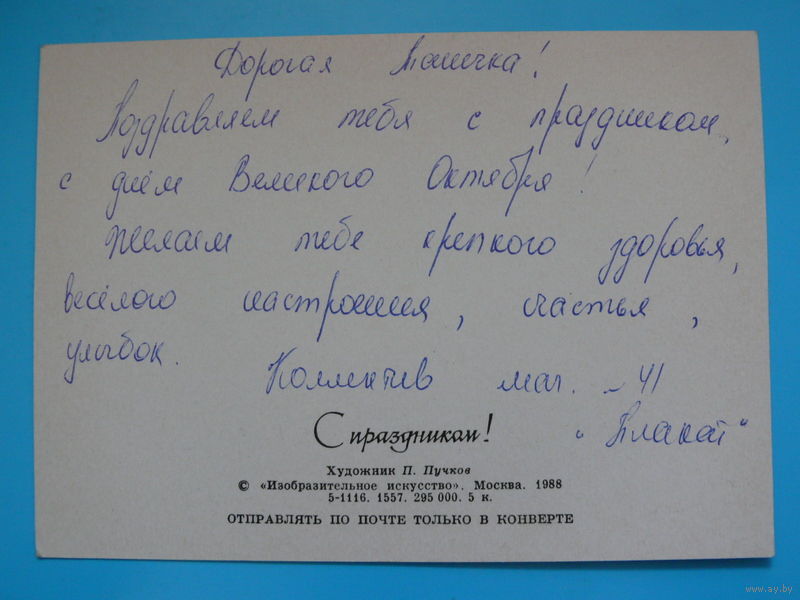 Дорогая Машичка!
Поздравляем тебя с праздником,
с днём Великого Октября!
Желаем тебе крепкого здоровья,
весёлого настроения, счастья,
улыбок.
Коллектив маг. – 41
"Плакат"
С праздником!
Художник П. Пучков
© «Изобразительное искусство». Москва. 1988
5-1116. 1557. 295 000. 5 к.
ОТПРАВЛЯТЬ ПО ПОЧТЕ ТОЛЬКО В КОНВЕРТЕ
www.ay.by